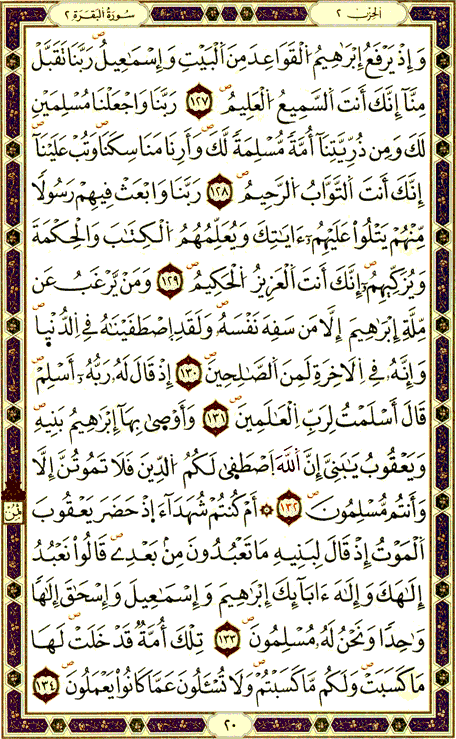 الحزب ٢
سُورَةُ البَقَرَة ٢
وَإِذْ يَرْفَعُ إِبْرَٰهِيمُ اُ۬لْقَوَاعِدَ مِنَ اَ۬لْبَيْتِ وَإِسْمَٰعِيلُ رَبَّنَا تَقَبَّلْ
مِنَّآ إِنَّكَ أَنتَ اَ۬لسَّمِيعُ اُ۬لْعَلِيمُ ١٢٧ رَبَّنَا وَاجْعَلْنَا مُسْلِمَيْنِ
لَكَ وَمِن ذُرِّيَّتِنَآ أُمَّةً مُّسْلِمَةً لَّكَ وَأَرِنَا مَنَاسِكَنَا وَتُبْ عَلَيْنَآ
إِنَّكَ أَنتَ اَ۬لتَّوَّابُ اُ۬لرَّحِيمُ ١٢٨ رَبَّنَا وَابْعَثْ فِيهِمْ رَسُولًا
مِّنْهُمْ يَتْلُواْ عَلَيْهِمُۥٓ ءَايَٰتِكَ وَيُعَلِّمُهُمُ اُ۬لْكِتَٰبَ وَالْحِكْمَةَ
وَيُزَكِّيهِمُۥٓ إِنَّكَ أَنتَ اَ۬لْعَزِيزُ اُ۬لْحَكِيمُ ١٢٩ وَمَنْ يَّرْغَبُ عَن
مِّلَّةِ إِبْرَٰهِيمَ إِلَّا مَن سَفِهَ نَفْسَهُۥ وَلَقَدِ اِ۪صْطَفَيْنَٰهُ فِے اِ۬لدُّنْيٰا
وَإِنَّهُۥ فِے اِ۬لَاخِرَةِ لَمِنَ اَ۬لصَّٰلِحِينَ ١٣٠ إِذْ قَالَ لَهُۥ رَبُّهُۥٓ أَسْلِمْ
قَالَ أَسْلَمْتُ لِرَبِّ اِ۬لْعَٰلَمِينَ ١٣١ وَأَوْصٜىٰ بِهَآ إِبْرَٰهِيمُ بَنِيهِ
وَيَعْقُوبُ يَٰبَنِيَّ إِنَّ اَ۬للَّهَ اَ۪صْطَفٜىٰ لَكُمُ اُ۬لدِّينَ فَلَا تَمُوتُنَّ إِلَّا
وَأَنتُم مُّسْلِمُونَ ١٣٢ ۞ أَمْ كُنتُمْ شُهَدَآءَ اِ۪ذْ حَضَرَ يَعْقُوبَ
اَ۬لْمَوْتُ إِذْ قَالَ لِبَنِيهِ مَا تَعْبُدُونَ مِنۢ بَعْدِے قَالُواْ نَعْبُدُ
إِلَٰهَكَ وَإِلَٰهَ ءَابَآئِكَ إِبْرَٰهِيمَ وَإِسْمَٰعِيلَ وَإِسْحَٰقَ إِلَٰهًا
وَٰحِدًا وَنَحْنُ لَهُۥ مُسْلِمُونَ ١٣٣ تِلْكَ أُمَّةٌ قَدْ خَلَتْ لَهَا
مَا كَسَبَتْ وَلَكُم مَّا كَسَبْتُمْ وَلَا تُسْـَٔلُونَ عَمَّا كَانُواْ يَعْمَلُونَ ١٣٤
٢٠